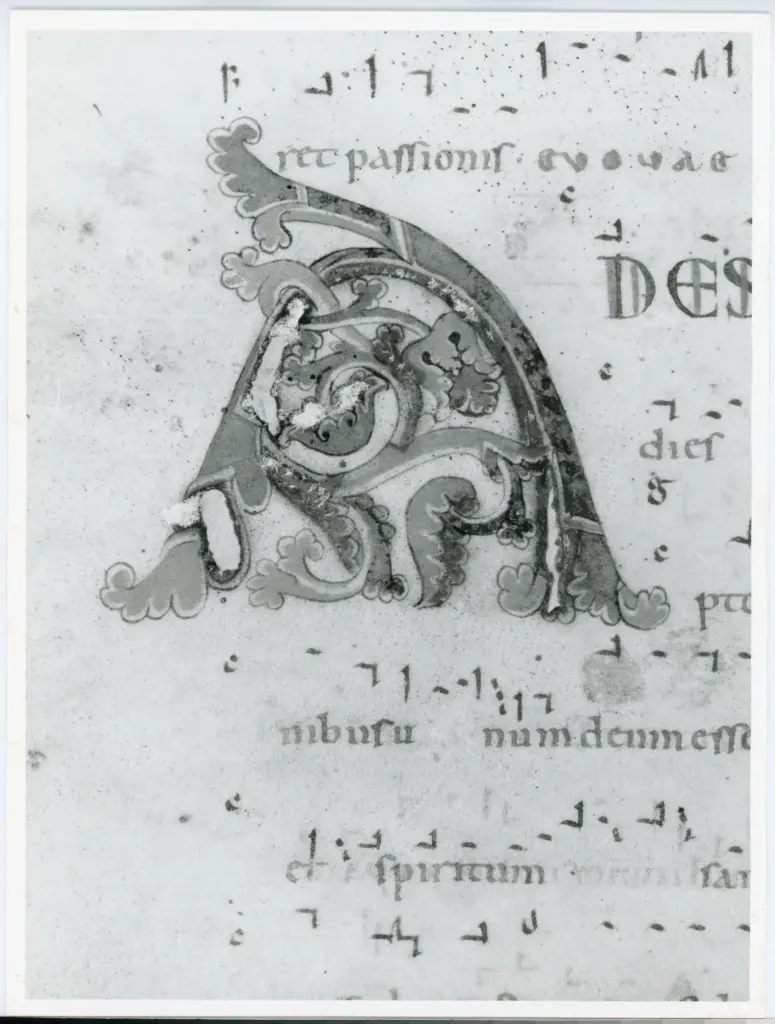 ret passionis · e v o v a e
A DES
dies
&
pto
nibus u num deum esse
et spiritum san